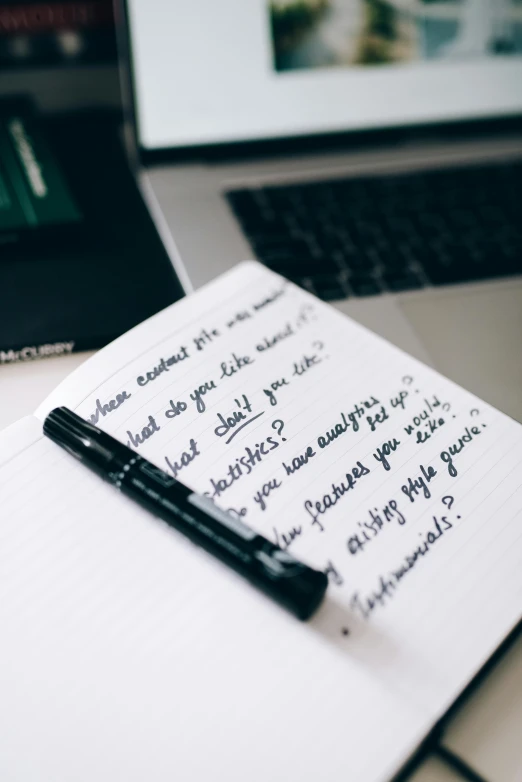 McCUBBY
when content site was
what do you like about it?
what don't you like?
statistics?
Do you have analytics set up?
features you would like?
existing style guide?
Testimonials?